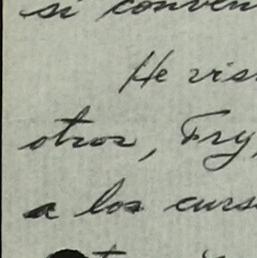 si conven
He vis
otros, Fry,
a los curs